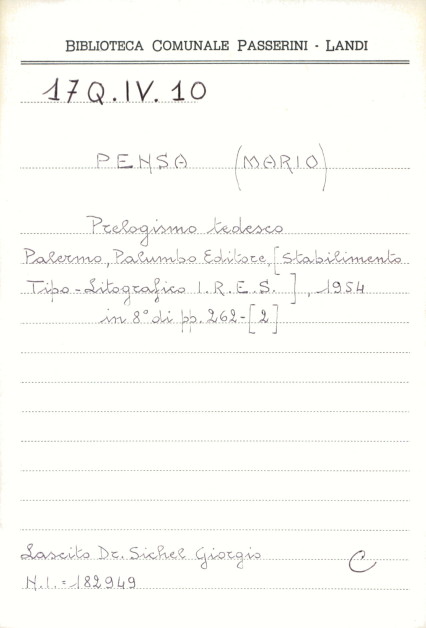 BIBLIOTECA COMUNALE PASSERINI - LANDI
17Q.IV.10
PENSA (MARIO)
Prelogismo tedesco
Palermo, Palumbo Editore, [Stabilimento
Tipo-Litografico I.R.E.S. ], 1954
in 8° di pp. 262-[2]
Lascito Dr. Sichel Giorgio
C
N.I. = 182949